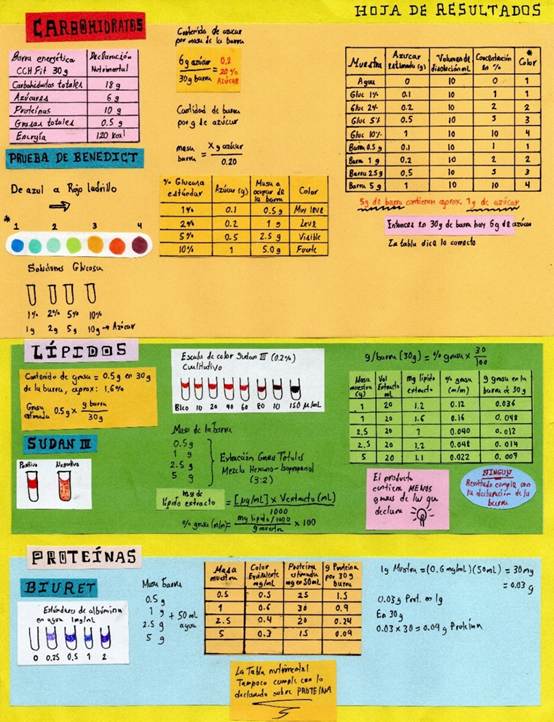 HOJA DE RESULTADOS
CARBOHIDRATOS
Barra energética CCH Fit 30g | Declaración Nutrimental
Carbohidratos totales | 18 g
Azúcares | 6 g
Proteínas | 10 g
Grasas totales | 0.5 g
Energía | 120 kcal
Contenido de azúcar por masa de la barra
6g azúcar / 30g barra = 0.2 20% AZÚCAR
Cantidad de barra por g de azúcar
masa barra = x g azúcar / 0.20
Muestra | Azúcar estimado (g) | Volumen de disolución mL | Concentración en % | * Color
Agua | 0 | 10 | 0 | 1
Gluc 1% | 0.1 | 10 | 1 | 1
Gluc 2% | 0.2 | 10 | 2 | 2
Gluc 5% | 0.5 | 10 | 5 | 3
Gluc 10% | 1 | 10 | 10 | 4
Barra 0.5 g | 0.1 | 10 | 1 | 1
Barra 1 g | 0.2 | 10 | 2 | 2
Barra 2.5g | 0.5 | 10 | 5 | 3
Barra 5 g | 1 | 10 | 10 | 4
5g de barra contienen aprox. 1g de azúcar
Entonces en 30g de barra hay 6g de azúcar
La tabla dice lo correcto
PRUEBA DE BENEDICT
De azul a Rojo ladrillo
* 1 2 3 4
% Glucosa estándar | Azúcar (g) | Masa a ocupar de la barra | Color
1% | 0.1 | 0.5 g | Muy leve
2% | 0.2 | 1 g | Leve
5% | 0.5 | 2.5 g | Visible
10% | 1 | 5.0 g | Fuerte
Soluciones Glucosa
1% 2% 5% 10%
1g 2g 5g 10g → Azúcar
LÍPIDOS
Contenido de grasa = 0.5 g en 30g de la barra, aprox: 1.6%
Grasa estimada 0.5g x g barra / 30g
Escala de color Sudan III (0.2%)
Cualitativo
Blco 10 20 40 60 80 10 150 µg/mL
g/barra (30g) = % grasa x 30/100
Masa muestra (g) | Vol Extracto mL | mg lípido extracto | % grasa (m/m) | g grasa en la barra de 30 g
1 | 20 | 1.2 | 0.12 | 0.036
5 | 20 | 1.6 | 0.16 | 0.048
2.5 | 20 | 1 | 0.040 | 0.012
2.5 | 20 | 1.2 | 0.048 | 0.014
5 | 20 | 1.1 | 0.022 | 0.007
SUDAN III
Positivo Negativo
Masa de la barra
0.5g
1 g
2.5 g
5 g
Extracción Grasa Totales
Mezcla Hexano-Isopropanol
(3:2)
mg de lípido extracto = [µg/mL] x V extracto (mL) / 1000
% grasa (m/m) = mg lípido/1000 / g muestra x 100
El producto contiene MENOS grasas de las que declara
NINGUN Resultado cumple con la declaración de la barra
PROTEÍNAS
BIURET
Estándares de albúmina en agua 1mg/mL
0 0.25 0.5 1 2
Masa barra
0.5 g
1 g
2.5 g
5 g
+ 50 mL agua
Masa muestra | Color Equivalente mg/mL | Proteína estimada mg en 50mL | g Proteína por 30 g barra
0.5 | 0.5 | 25 | 1.5
1 | 0.6 | 30 | 0.9
2.5 | 0.4 | 20 | 0.24
5 | 0.3 | 15 | 0.09
1g Mestra = (0.6 mg/mL)(50mL) = 30mg
= 0.03 g
0.03g Prot. en 1g
En 30g
0.03 x 30 = 0.09 g Proteína
La Tabla nutrimental Tampoco cumple con lo declarado sobre PROTEINA